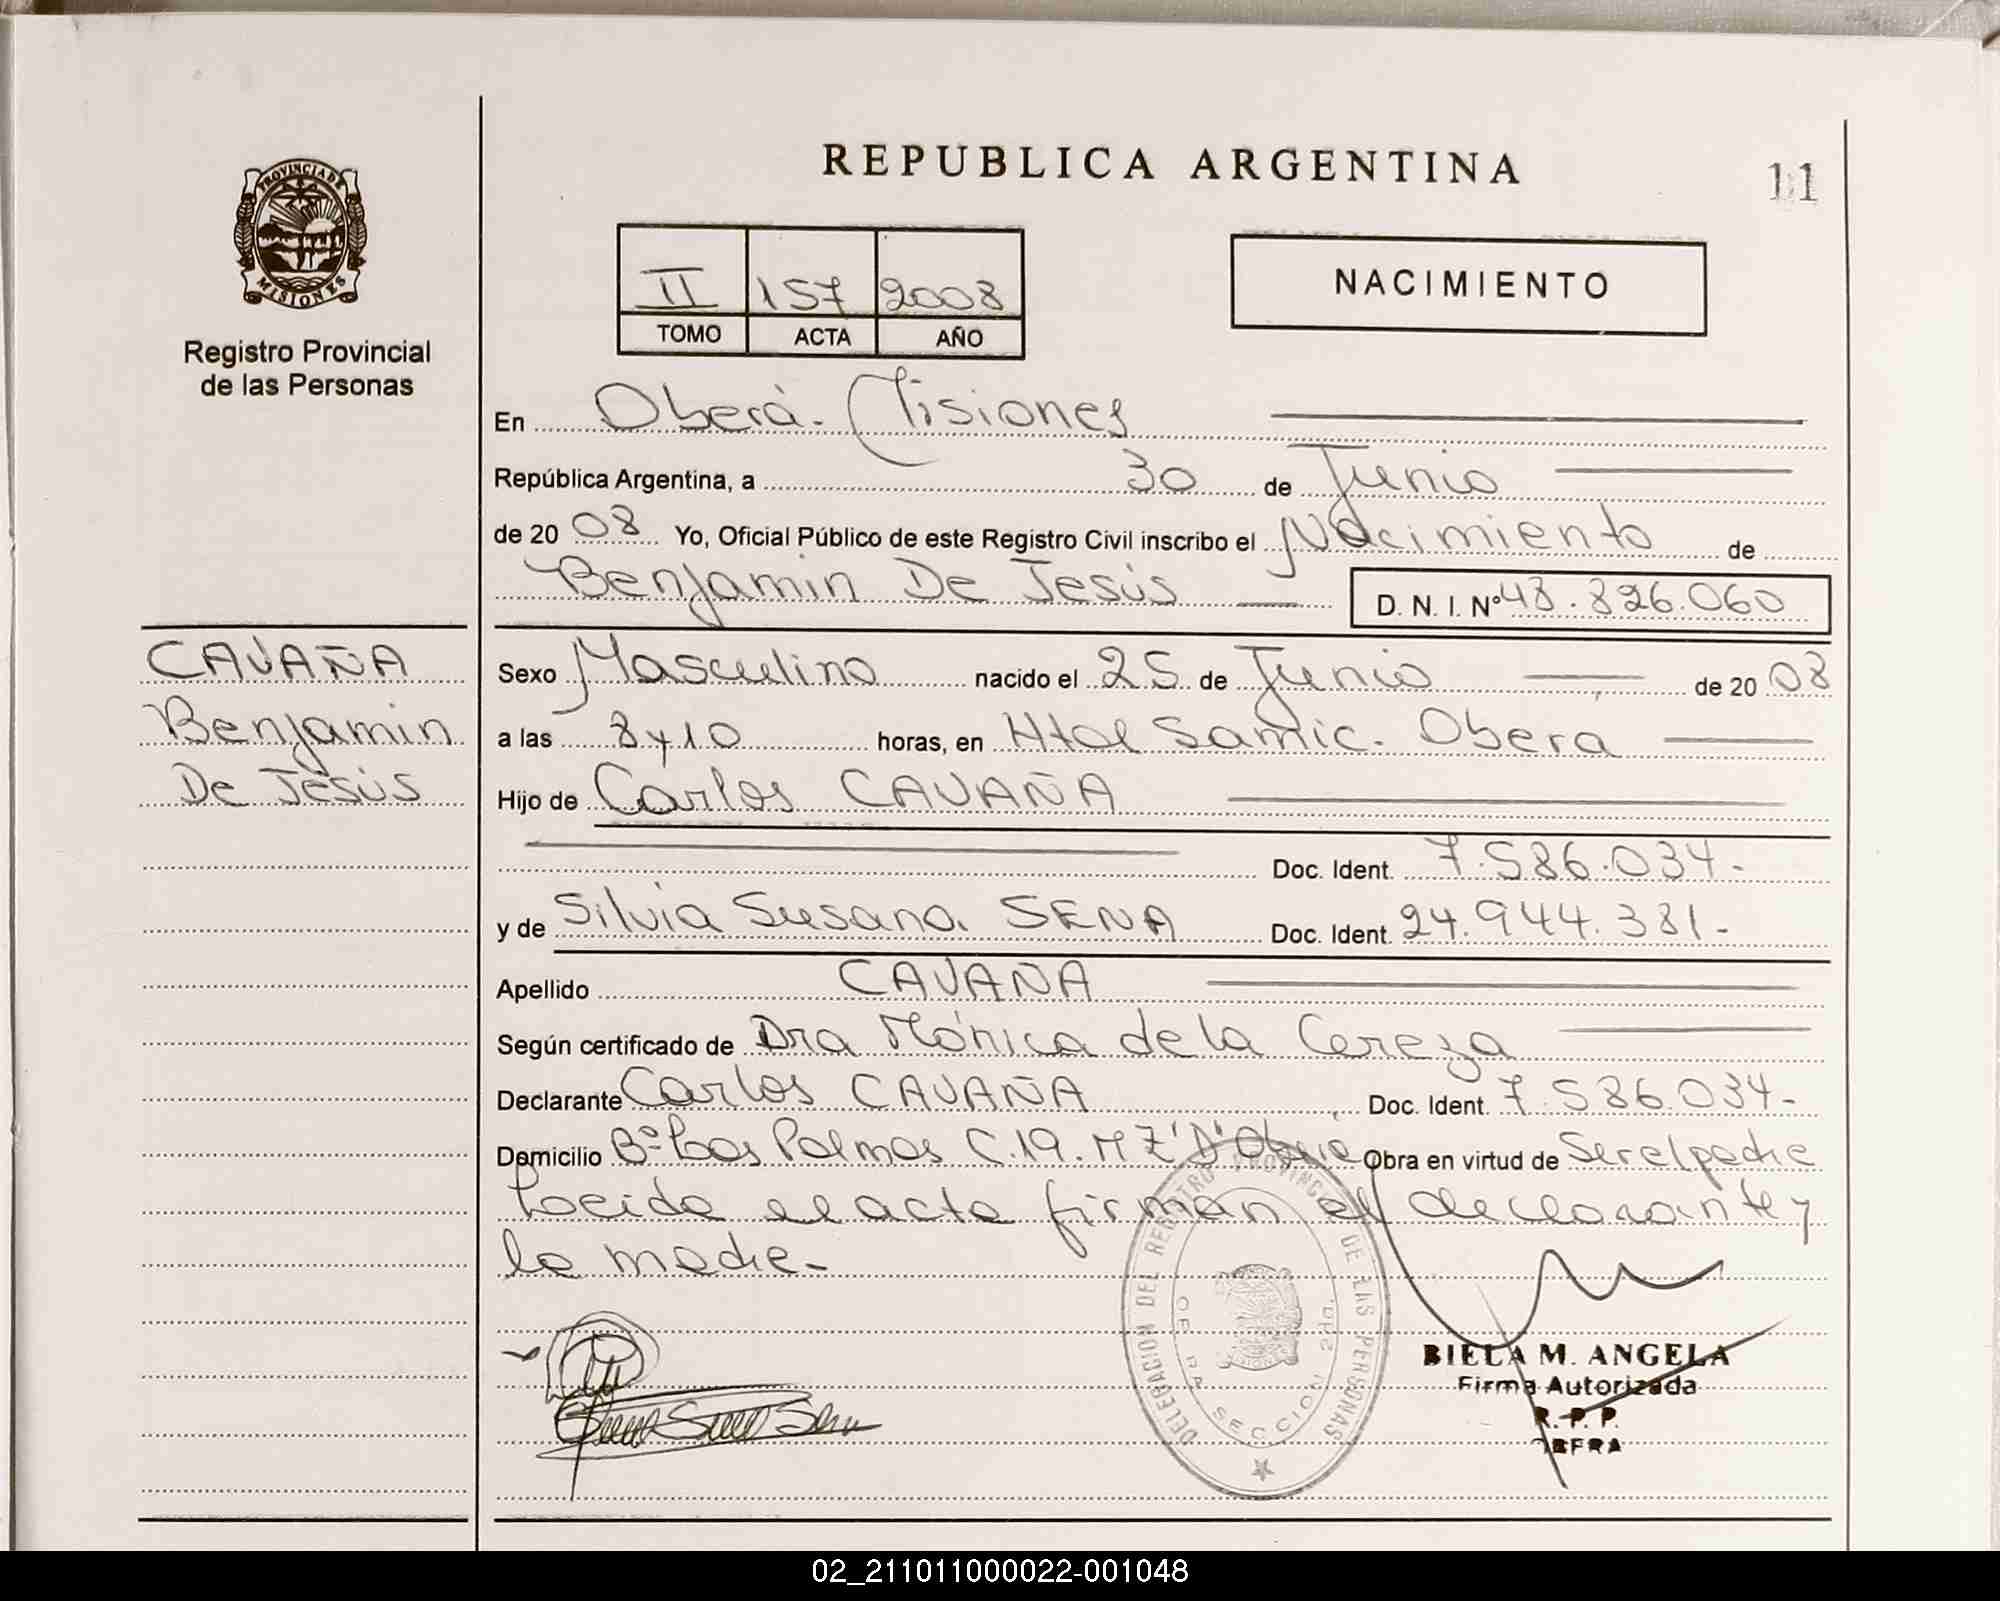 REPUBLICA ARGENTINA
11
PROVINCIA DE
MISIONES
Registro Provincial
de las Personas
II 157 2008
TOMO ACTA AÑO
NACIMIENTO
En Oberá - Misiones
República Argentina, a 30 de Junio
de 20 08 Yo, Oficial Público de este Registro Civil inscribo el Nacimiento de
Benjamin De Jesús D. N. I. Nº 48.826.060
CAVAÑA
Benjamin
De Jesús
Sexo Masculino nacido el 25 de Junio de 20 08
a las 8 y 10 horas, en Htal Samic. Oberá
Hijo de Carlos CAVAÑA
Doc. Ident. 7.586.034-
y de Silvia Susana SENA Doc. Ident. 24.944.381-
Apellido CAVAÑA
Según certificado de Dra Mónica de la Cereza
Declarante Carlos CAVAÑA Doc. Ident. 7.586.034-
Domicilio Bº Las Palmas C.19. MZ 'D' Oberá Obra en virtud de Ser el padre
Leida el acta firman el declarante y
la madre-
DELEGACION DEL REGISTRO PROVINCIAL DE LAS PERSONAS
OBERA
SECCION 2da.
BIELA M. ANGELA
Firma Autorizada
R. P. P.
OBERA
02_211011000022-001048